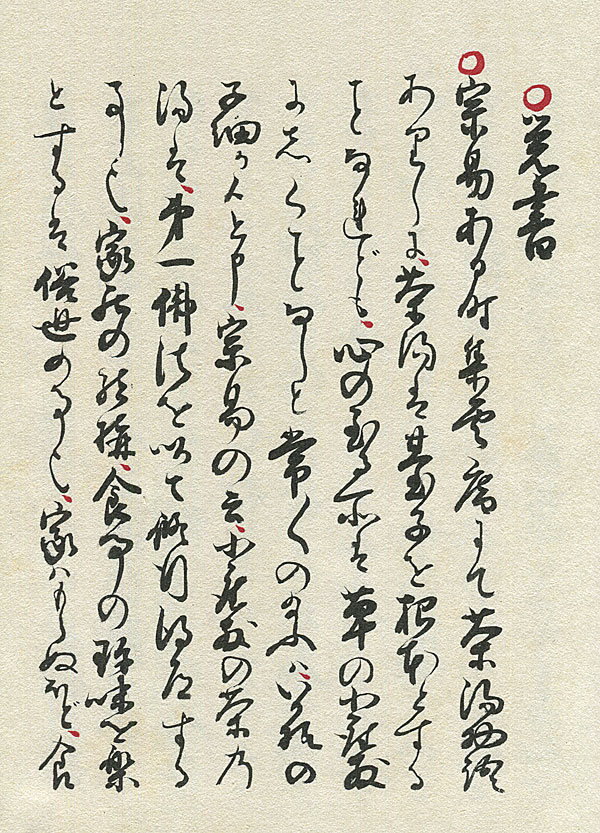 ○覚書
○宗易ある时集雲庵にて茶湯物語
ありしに、茶湯は臺子を根本とする
ことなれども、心の至る所は草の小座敷
にしくことなしと常々の給ふハ、いか様の
子細か候と申、宗易の云、小座敷の茶乃
湯は、第一佛法を以て修行得道する
事也、家居の結構、食事の珍味を楽
とするは俗世の事也、家ハもらぬほど、食